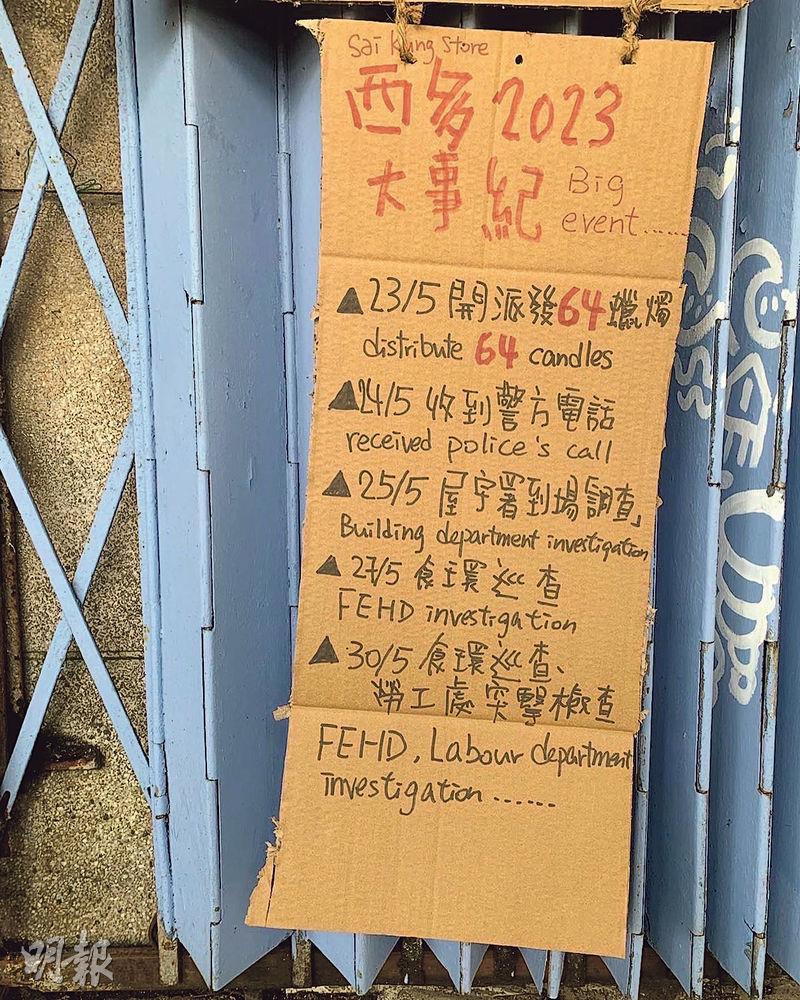 Sai Kung Store
西多2023
大事紀 Big
event......
▲23/5 開派發64蠟燭
distribute 64 candles
▲24/5 收到警方電話
received police's call
▲25/5 屋宇署到場「調查」
Building department investigation
▲27/5 食環巡查
FEHD investigation
▲30/5 食環巡查、
勞工處突擊檢查
FEHD, Labour department
investigation ......
明報